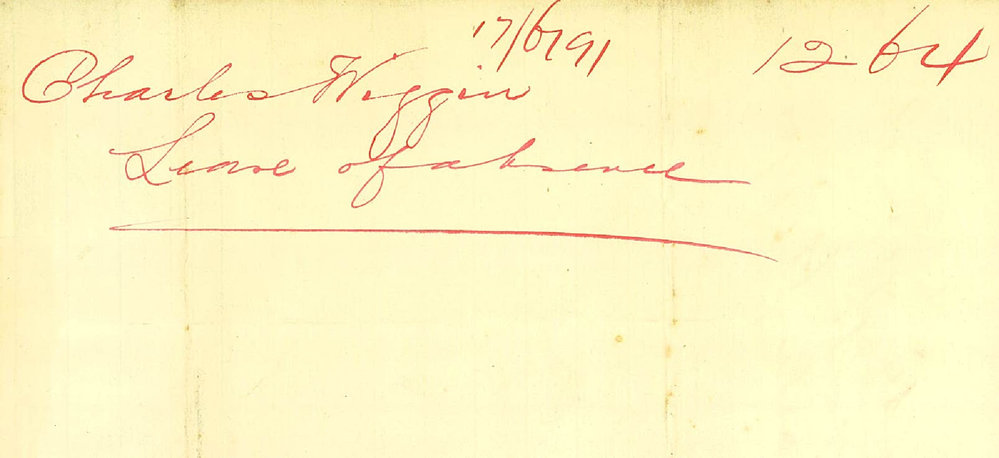 17/6/91 1264
Charles Wiggin
Leave of absence